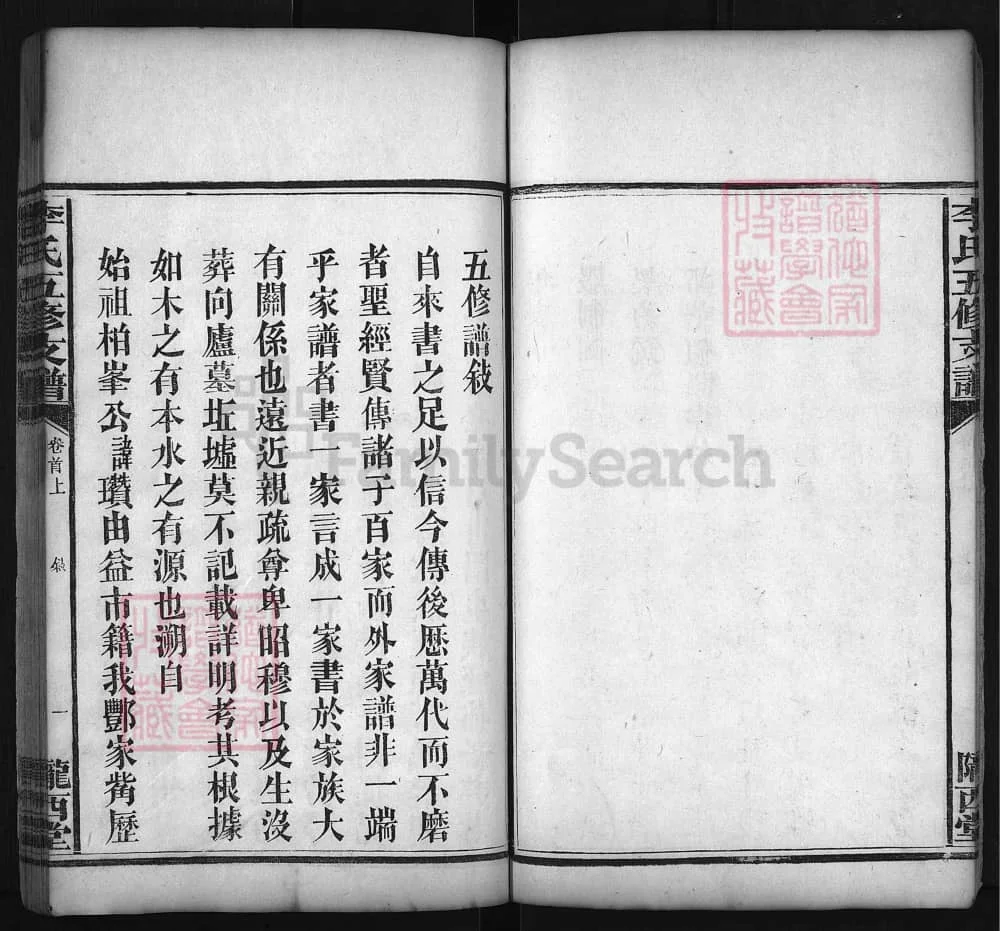 李氏五修支譜
隴西堂
五修譜敍
自來書之足以信今傳後歷萬代而不磨
者聖經賢傳諸子百家而外家譜非一端
乎家譜者書一家言成一家書於家族大
有關係也遠近親疏尊卑昭穆以及生沒
葬向廬墓坵墟莫不記載詳明考其根據
如木之有本水之有源也溯自
始祖柏峯公諱瓚由益市籍我酃家觜歷
李氏五修支譜
卷首上
敍
一
隴西堂
FamilySearch